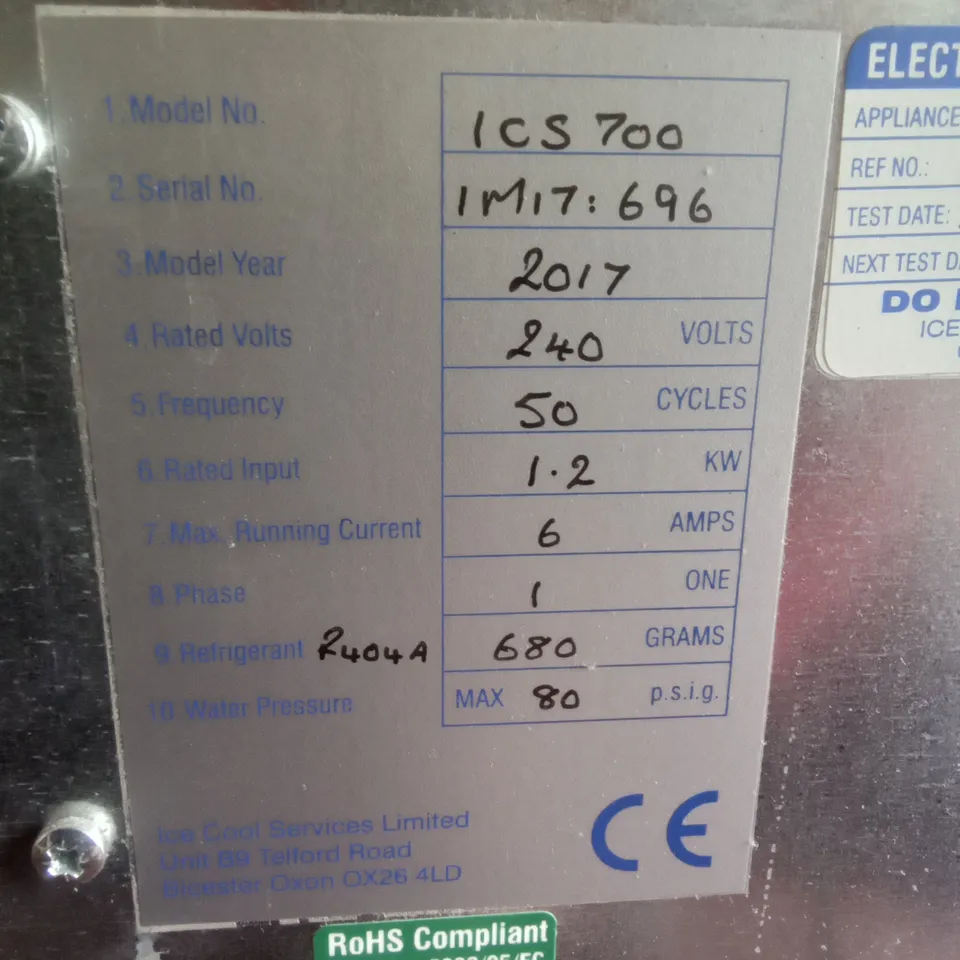 1. Model No. ICS 700
2. Serial No. 1M17: 696
3. Model Year 2017
4. Rated Volts 240 VOLTS
5. Frequency 50 CYCLES
6. Rated Input 1.2 KW
7. Max. Running Current 6 AMPS
8. Phase 1 ONE
9. Refrigerant R404A 680 GRAMS
10. Water Pressure MAX 80 p.s.i.g.
Ice Cool Services Limited
Unit B9 Telford Road
Bicester Oxon OX26 4LD
CE
RoHS Compliant
ELECT
APPLIANCE
REF NO.:
TEST DATE:
NEXT TEST
DO
ICE